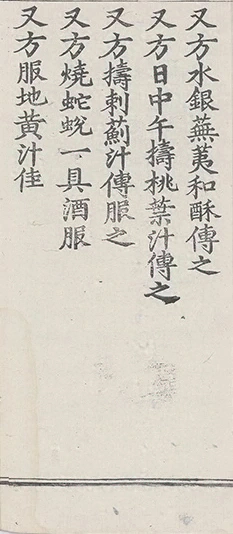 又方水銀蕪荑和酥傅之
又方日中午擣桃葉汁傅之
又方擣刺薊汁傅服之
又方燒蛇蛻一具酒服
又方服地黃汁佳